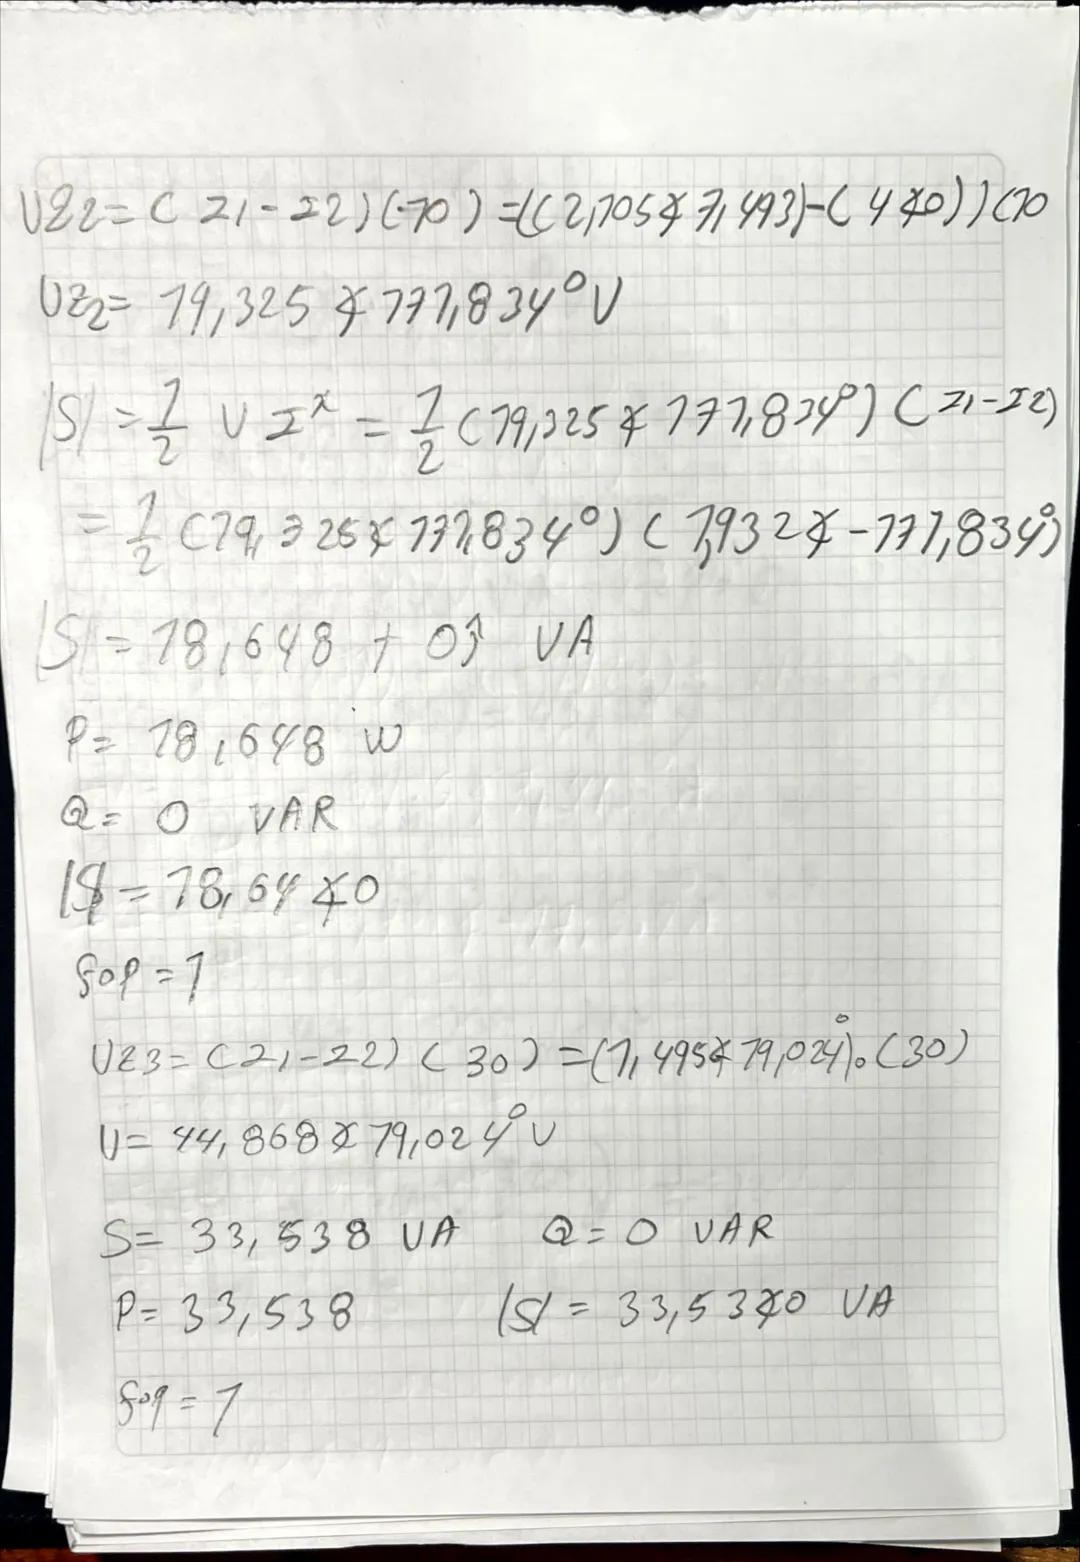 VZ2 = (I1-I2)(-10) = ((2,105∡7,493)-(4∡0))(10
VZ2 = 19,325 ∡ 171,834° V
|S| = 1/2 V I* = 1/2 (19,325 ∡ 171,834°) (I1-I2)
= 1/2 (19,325 ∡ 171,834°) (1,932 ∡ -171,834°)
|S| = 18,648 + 0j VA
P = 18,648 W
Q = 0 VAR
|S| = 18,64 ∡0
fop = 1
VZ3 = (I1-I2) (30) = (1,495∡19,024°).(30)
V = 44,868 ∡ 19,024° V
S = 33,538 VA Q = 0 VAR
P = 33,538 |S| = 33,53∡0 VA
fop = 1